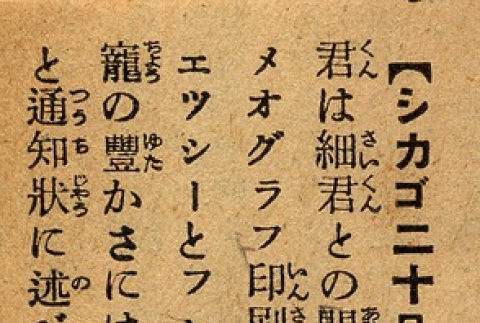 【シカゴ二十日
君は細君との間
メオグラフ印刷
エツシーとフ
寵の豊かさには
と通知狀に述べ